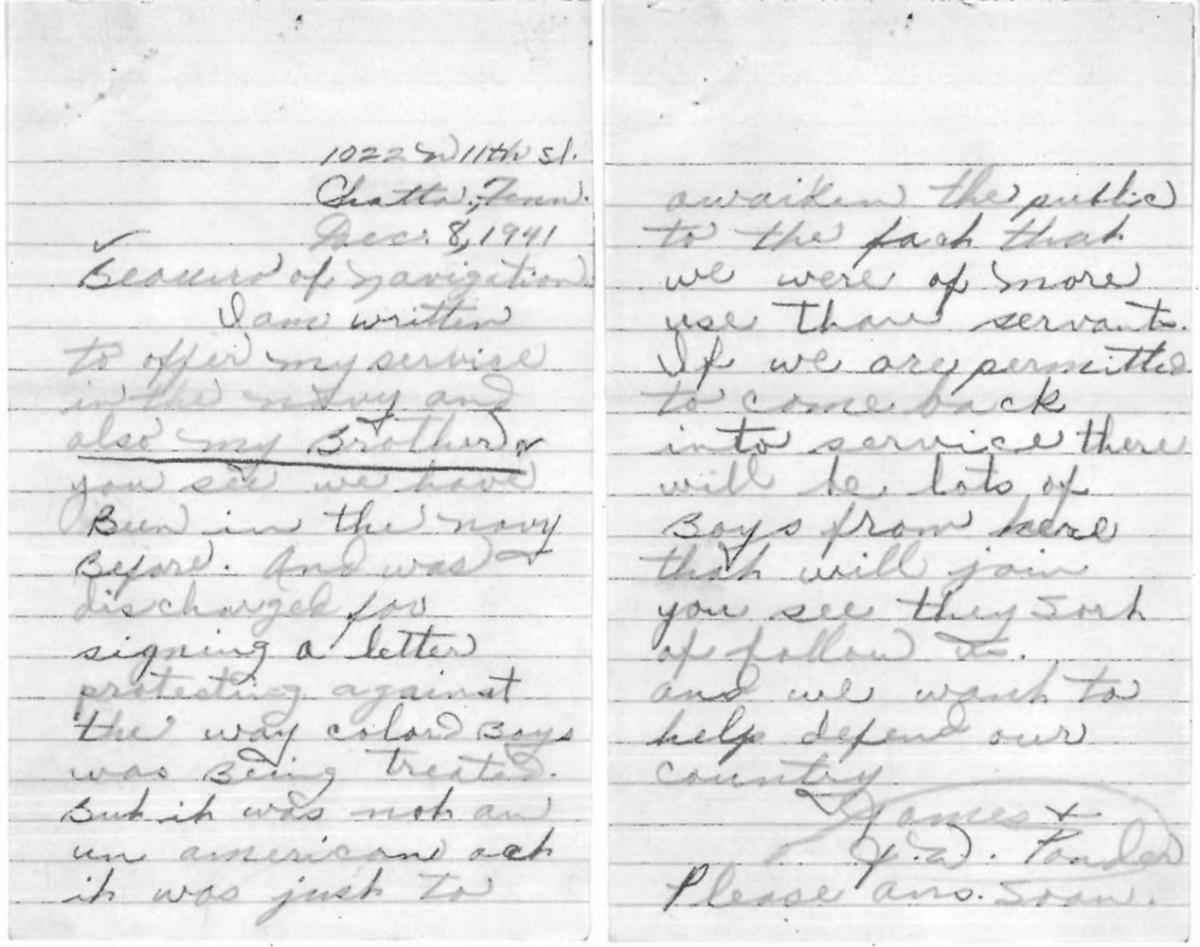 1022 W 11th st.
Chatta, Tenn.
Dec. 8, 1941
of navigation
I am written
to offer my service
in the navy and
also my Brother
you see we have
Been in the navy
Before. And was
discharged for
signing a letter
protesting against
the way colord Boys
was Being treated.
But it was not an
un american act
it was just to
awaiken the public
to the fact that
we were of more
use than servants.
If we are permitted
to come back
into service there
will be lots of
Boys from here
that will join
you see they sort
of follow us.
and we want to
help defend our
country
James +
Ponder
Please ans. soon.